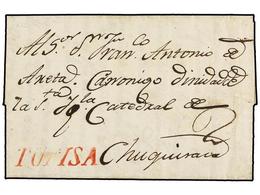 Al S.or D.n Fran.co Antonio de
Areta, Canonigo dignidad de
la S.ta Catedral de
TUPISA Chuquisaca